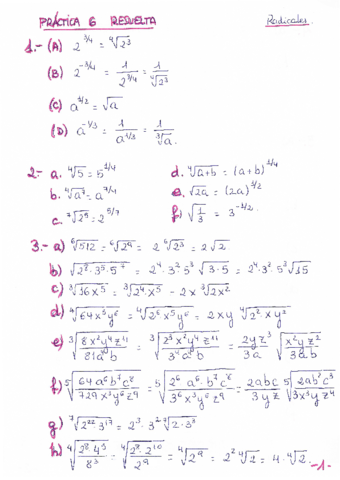 PRÁCTICA 6 RESUELTA Radicales.
1.- (A) 2^{3/4} = ∜2³
(B) 2^{-3/4} = 1/2^{3/4} = 1/∜2³
(C) a^{1/2} = √a
(D) a^{-1/3} = 1/a^{1/3} = 1/∛a.
2.- a. ∜5 = 5^{1/4} d. ∜(a+b) = (a+b)^{1/4}
b. ∜a⁷ = a^{7/4} e. √2a = (2a)^{1/2}
c. ⁷√2⁵ = 2^{5/7} f) √(1/3) = 3^{-1/2}.
3.- a) ⁶√512 = ⁶√2⁹ = 2 ⁶√2³ = 2√2
b) √(2⁸·3⁵·5⁷) = 2⁴·3²·5³ √(3·5) = 2⁴·3²·5³ √15
c) ∛(16x⁵) = ∛(2⁴x⁵) - 2x ∛(2x²)
d) ∜(64x⁵y⁶) = ∜(2⁶x⁵y⁶) = 2xy ∜(2²·xy²)
e) ∛(8x²y⁴z¹¹/81a⁴b) = ∛(2³x²y⁴z¹¹/3⁴a⁴b) = 2yz³/3a ∛(x²yz²/3ab)
f) ⁵√(64a⁶b⁷c⁸/729x³y⁶z⁹) = ⁵√(2⁶a⁶·b⁷c⁸/3⁶x³y⁶z⁹) = 2abc/3yz ⁵√(2ab²c³/3x³yz⁴)
g) ⁷√(2²²3¹⁷) = 2³·3² ⁷√(2·3³)
h) ∜(2⁸·4⁵/8³) = ∜(2⁸·2¹⁰/2⁹) = ∜2⁹ = 2² ∜2 = 4·∜2.
-1-